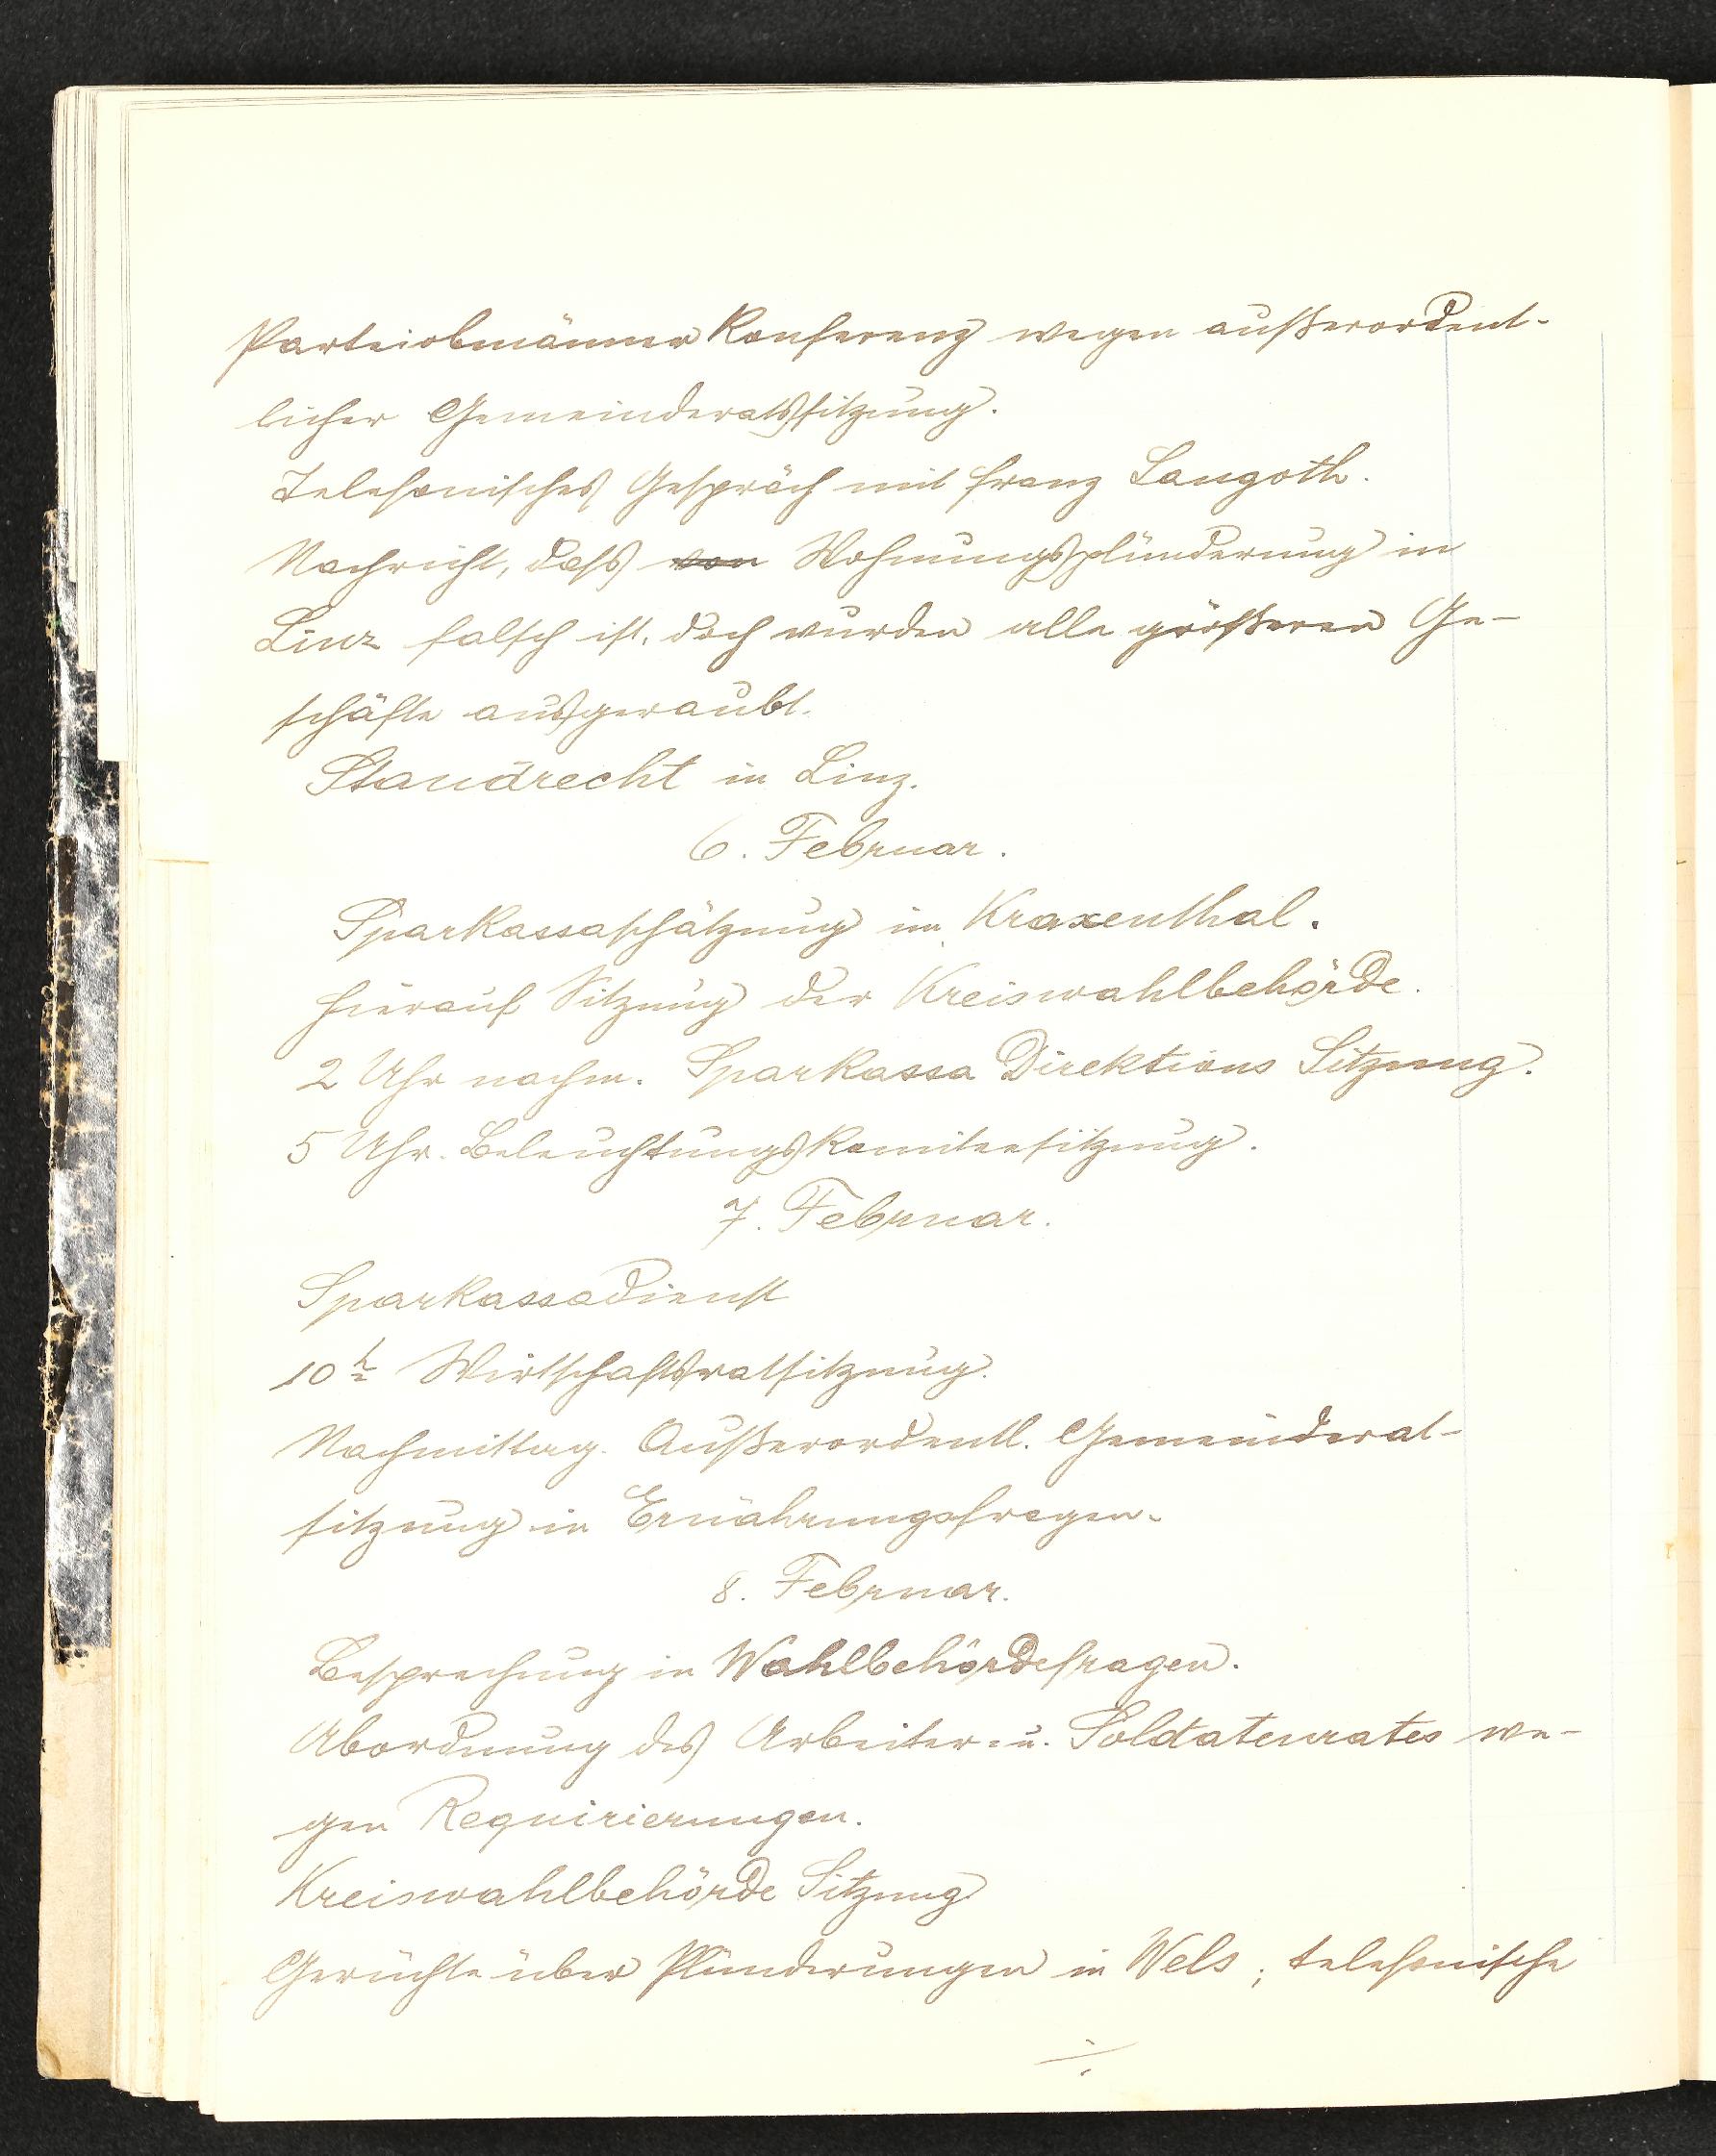 Parteiobmänner Konferenz wegen außerordent-
licher Gemeinderatssitzung.
Telefonisches Gespräch mit Franz Langoth.
Nachricht, dass von Wohnungsplünderung in
Linz falsch ist, doch wurden alle größeren Ge-
schäfte ausgeraubt.
Standrecht in Linz.
6. Februar.
Sparkassaschätzung im Kraxenthal.
hierauf Sitzung der Kreiswahlbehörde.
2 Uhr nachm. Sparkassa Direktions Sitzung.
5 Uhr. Beleuchtungskomiteesitzung.
7. Februar.
Sparkassadienst
10 h Wirtschaftsratsitzung.
Nachmittag. Außerordentl. Gemeinderat-
sitzung in Ernährungsfragen.
8. Februar.
Besprechung in Wahlbehördefragen.
Abordnung des Arbeiter- u. Soldatenrates we-
gen Requirierungen.
Kreiswahlbehörde Sitzung
Gerüchte über Plünderungen in Wels; telefonische
./.